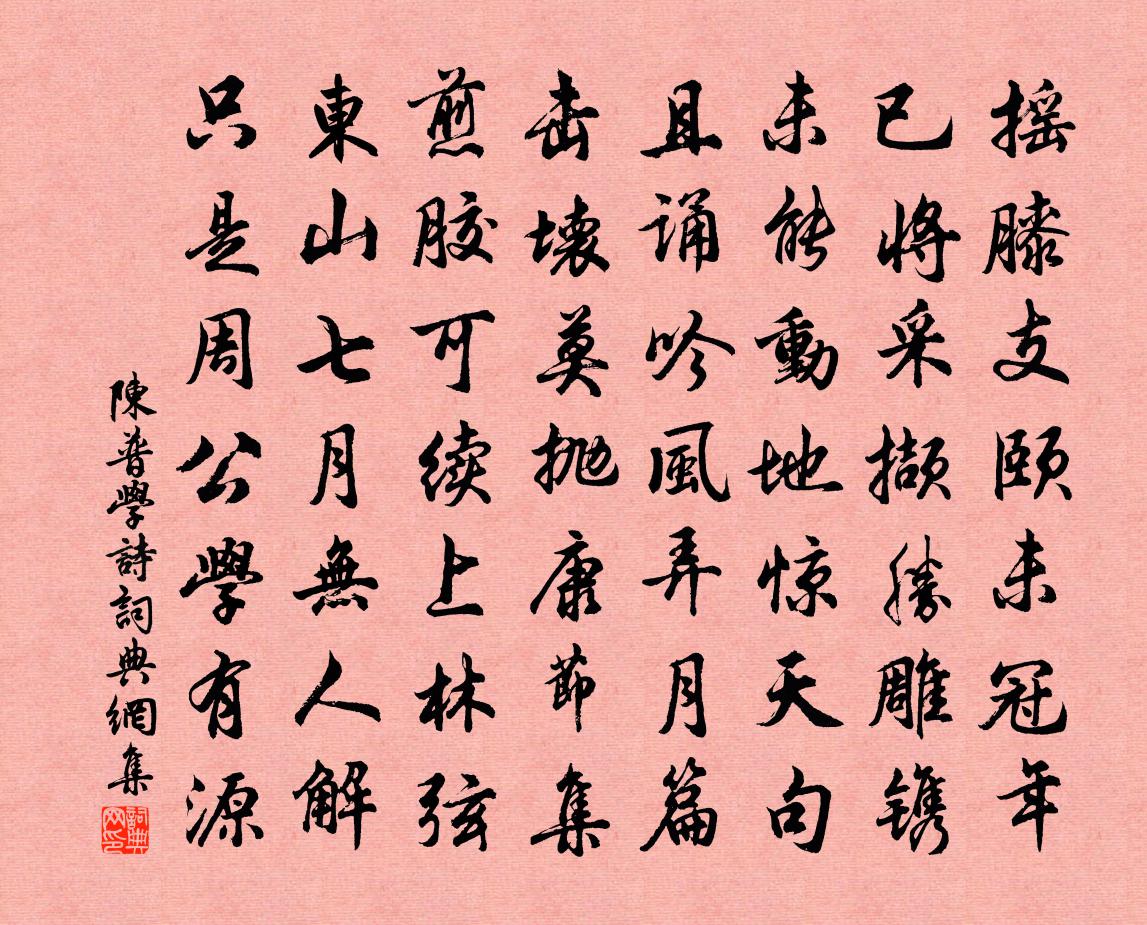 摇膝支颐未冠年
已將采撷勝雕镌
未能動地惊天句
且诵吟風弄月篇
击壤莫抛康節集
煎胶可续上林弦
東山七月無人解
只是周公學有源
陳普學詩詞典網集
詞典网印